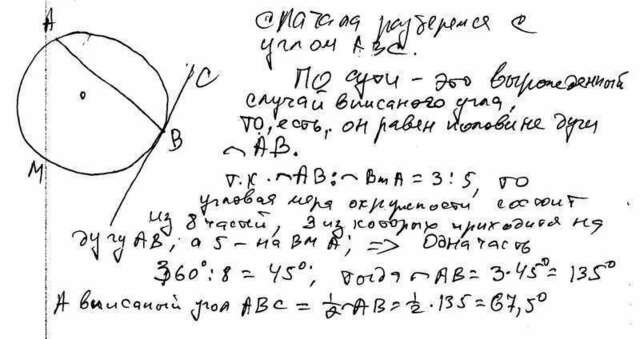 A
C
B
M
сначала разберемся с
углом ABC.
По сути - это вырожденный
случай вписаного угла,
то, есть, он равен половине дуги
◠AB.
т.к. ◠AB:◠BmA = 3:5, то
угловая мера окружности состоит
из 8 частей, 3 из которых приходится на
дугу AB, а 5 - на BmA; => Одна часть
360°:8 = 45°; тогда ◠AB = 3·45° = 135°
А вписаный угол ABC = ½◠AB = ½·135 = 67,5°